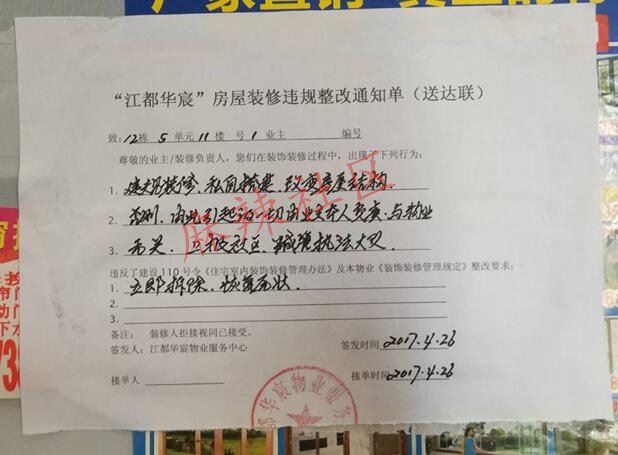 “江都华宸”房屋装修违规整改通知单（送达联）
致：12栋 5 单元 11 楼 号 1 业主 编号
尊敬的业主/装修负责人，您们在装饰装修过程中，出现了下列行为：
1. 装修，私自搭建，改变房屋结构
2. 否则，由此引起的一切由业主本人负责，与物业
3. 无关。 社区、城管执法大队
违反了建设 110 号令《住宅室内装饰装修管理办法》及本物业《装饰装修管理规定》整改要求：
1. 立即拆除，恢复原状。
2.
3.
备注： 装修人拒接视同已接受。
签发人：江都华宸物业服务中心 签发时间 2017.4.26
接单人 接单时间 2017.4.26
都华宸物业服务
麻辣社区